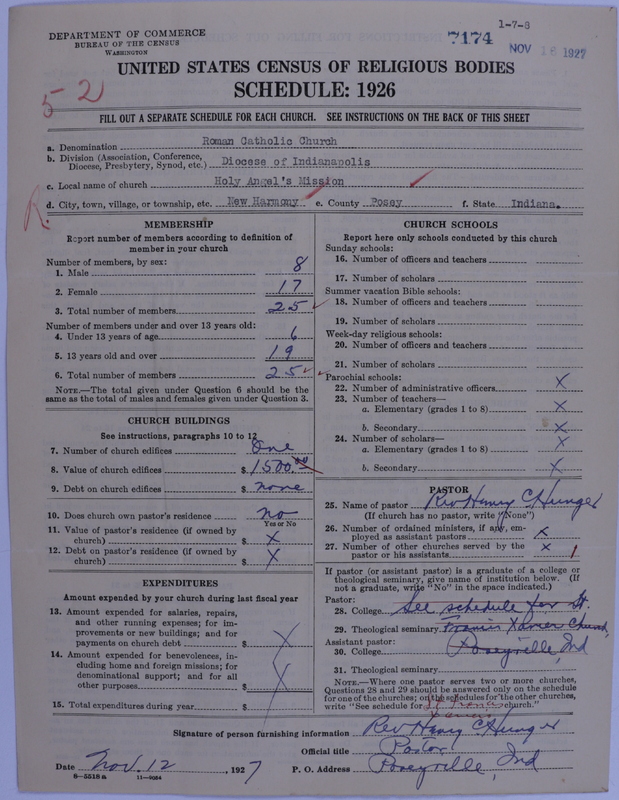 1-7-8
DEPARTMENT OF COMMERCE
BUREAU OF THE CENSUS
WASHINGTON
7174
NOV 16 1927
UNITED STATES CENSUS OF RELIGIOUS BODIES
SCHEDULE: 1926
52
FILL OUT A SEPARATE SCHEDULE FOR EACH CHURCH. SEE INSTRUCTIONS ON THE BACK OF THIS SHEET
a. Denomination Roman Catholic Church
b. Division (Association, Conference, Diocese, Presbytery, Synod, etc.) Diocese of Indianapolis
c. Local name of church Holy Angel's Mission
R.
d. City, town, village, or township, etc. New Harmony e. County Posey f. State Indiana.
MEMBERSHIP
Report number of members according to definition of
member in your church
Number of members, by sex:
1. Male 8
2. Female 17
3. Total number of members 25
Number of members under and over 13 years old:
4. Under 13 years of age 6
5. 13 years old and over 19
6. Total number of members 25
NOTE.—The total given under Question 6 should be the
same as the total of males and females given under Question 3.
CHURCH BUILDINGS
See instructions, paragraphs 10 to 12
7. Number of church edifices One
8. Value of church edifices $ 1500.00
9. Debt on church edifices $ none
10. Does church own pastor's residence no
Yes or No
11. Value of pastor's residence (if owned by
church) $ X
12. Debt on pastor's residence (if owned by
church) $ X
EXPENDITURES
Amount expended by your church during last fiscal year
13. Amount expended for salaries, repairs,
and other running expenses; for im-
provements or new buildings; and for
payments on church debt $ X
14. Amount expended for benevolences, in-
cluding home and foreign missions; for
denominational support; and for all
other purposes $ X
15. Total expenditures during year $
CHURCH SCHOOLS
Report here only schools conducted by this church
Sunday schools:
16. Number of officers and teachers
17. Number of scholars
Summer vacation Bible schools:
18. Number of officers and teachers
19. Number of scholars
Week-day religious schools:
20. Number of officers and teachers
21. Number of scholars
Parochial schools:
22. Number of administrative officers X
23. Number of teachers—
a. Elementary (grades 1 to 8) X
b. Secondary X
24. Number of scholars—
a. Elementary (grades 1 to 8) X
b. Secondary X
PASTOR
25. Name of pastor Rev Henry C Hunger
(If church has no pastor, write "None")
26. Number of ordained ministers, if any, em-
ployed as assistant pastors X
27. Number of other churches served by the
pastor or his assistants X 1
If pastor (or assistant pastor) is a graduate of a college or
theological seminary, give name of institution below. (If
not a graduate, write "No" in the space indicated.)
Pastor:
28. College See schedule for St.
29. Theological seminary Francis Xavier Church,
Assistant pastor:
30. College Poseyville, Ind
31. Theological seminary
NOTE.—Where one pastor serves two or more churches,
Questions 28 and 29 should be answered only on the schedule
for one of the churches; on the schedules for the other churches,
write "See schedule for St Francis Xavier church."
Signature of person furnishing information Rev Henry C Hunger
Official title Pastor
Date Nov. 12, 1927 P. O. Address Poseyville, Ind
8—5518a 11—9024